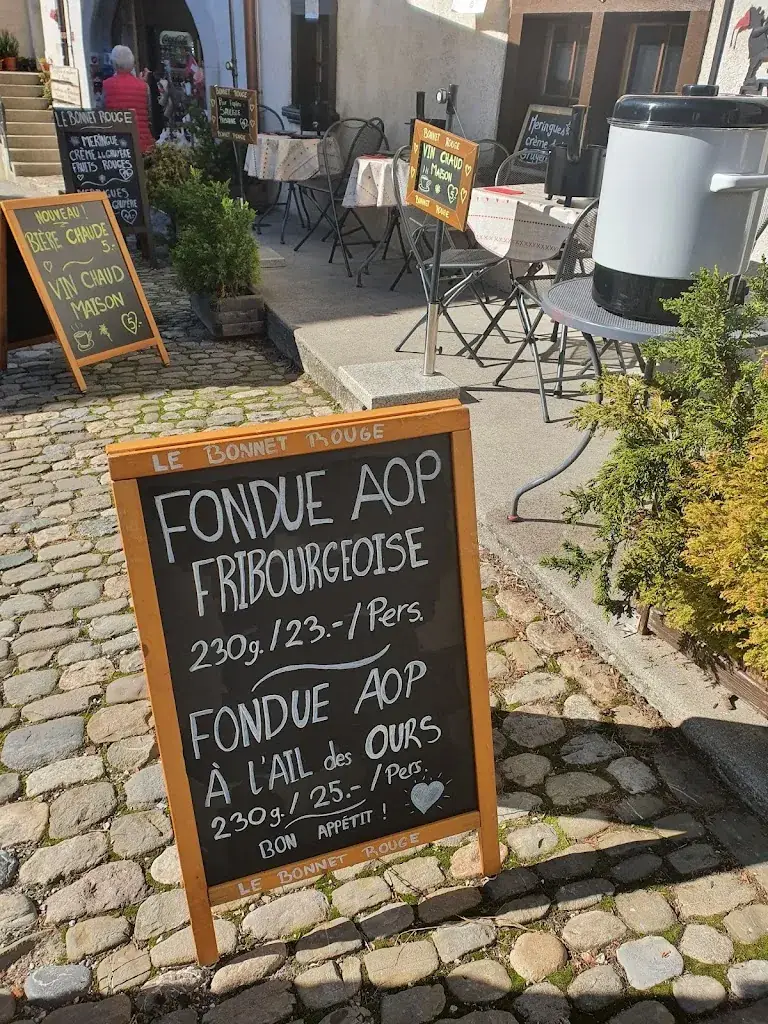 LE BONNET ROUGE
FONDUE AOP
FRIBOURGEOISE
230g./23.-/Pers.
FONDUE AOP
À l'AIL des OURS
230g./25.-/Pers.
BON APPÉTIT !
LE BONNET ROUGE
NOUVEAU !
BIÈRE CHAUDE
5.-
VIN CHAUD
MAISON
5.-
LE BONNET ROUGE
MERINGUE
CRÈME
FRUITS ROUGES
BONNET ROUGE
VIN CHAUD
MAISON
BONNET ROUGE
BONNET ROUGE
Meringues
crème